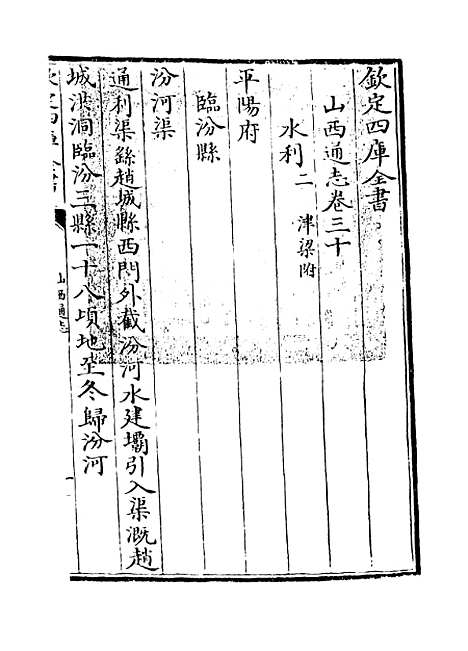 欽定四庫全書
山西通志卷三十
水利二 津梁附
平陽府
臨汾縣
汾河渠
通利渠繇趙城縣西門外截汾河水建壩引入渠溉趙
城洪洞臨汾三縣一十八頃地至冬歸汾河
山西通志
一